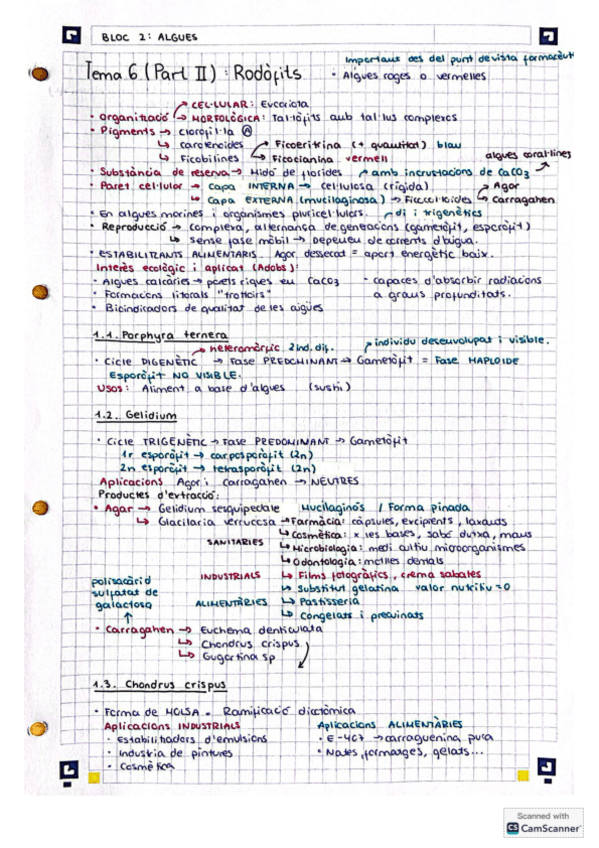 BLOC 2: ALGUES
Important des del punt de vista farmacèut
Tema 6 (Part II): Rodòfits
• Algues roges o vermelles
CEL·LULAR: Eucariota
• Organització → MORFOLÒGICA: Tal·lòfits amb tal·lus complexos
• Pigments → clorofil·la A
↳ carotenoides
Ficoeritrina (+ quantitat) blau
↳ Ficobilines
Ficocianina vermell
algues coral·lines
• Substància de reserva → Midó de florides
amb incrustacions de CaCO3
• Paret cel·lular → capa INTERNA → cel·lulosa (rígida)
Agar
↳ Capa EXTERNA (mucilaginosa) → Ficocol·loides
Carragahen
• En algues marines i organismes pluricel·lulars.
di i trigenètics
• Reproducció → complexa, alternança de generacions (gametòfit, esporòfit)
↳ sense fase mòbil → Depenen de corrents d'aigua.
• ESTABILITZANTS ALIMENTARIS. Agar dessecat = aport energètic baix.
Interès ecològic i aplicat (Adobs):
• Algues calcàries → parets riques en CaCO3
• capaces d'absorbir radiacions
• Formacions litorals "trottoirs"
a grans profunditats.
• Bioindicadors de qualitat de les aigües
1.1. Porphyra ternera
individu desenvolupat i visible.
heteromòrfic 2 ind. dif.
• Cicle DIGENÈTIC → FASE PREDOMINANT → Gametòfit = FASE HAPLOIDE
Esporòfit NO VISIBLE.
Usos: Aliment a base d'algues (sushi)
1.2. Gelidium
• Cicle TRIGENÈTIC → FASE PREDOMINANT → Gametòfit
1r esporòfit → carposporòfit (2n)
2n esporòfit → tetrasporòfit (2n)
Aplicacions Agar i Carragahen → NEUTRES
Productes d'extracció:
• Agar → Gelidium sesquipedale Mucilaginós / Forma pinada
↳ Glacilaria verrucosa → Farmàcia: càpsules, excipients, laxants
SANITARIES
↳ Cosmètica: x les bases, sabó dutxa, mans
↳ Microbiologia: medi cultiu microorganismes
↳ Odontologia: motlles dentals
INDUSTRIALS
↳ Films fotogràfics, crema sabates
polisacàrid
sulfatat de
galactosa
↳ Substitut gelatina valor nutritiu = 0
ALIMENTÀRIES
↳ Pastisseria
↳ Congelats i precuinats
• Carragahen → Euchema denticulata
↳ Chondrus crispus
↳ Gugartina sp
1.3. Chondrus crispus
• Forma de MOLSA. Ramificació dicotòmica
Aplicacions INDUSTRIALS
Aplicacions ALIMENTÀRIES
• Estabilitzadors d'emulsions
• E-407 → carraguenina pura
• Industria de pintures
• Nates, formatges, gelats...
• Cosmètica
Scanned with
CS CamScanner